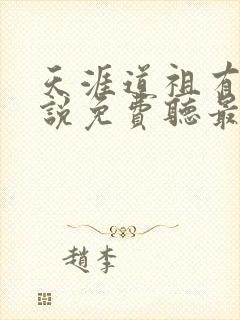 天涯道祖有
說免費聽最
趙李